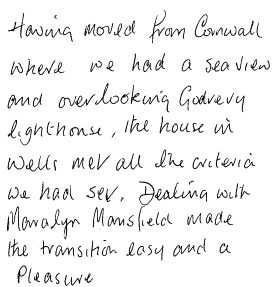 Having moved from Cornwall
where we had a sea view
and overlooking Godrevy
lighthouse, the house in
Wells met all the criteria
we had set. Dealing with
Marralyn Mansfield made
the transition easy and a
Pleasure